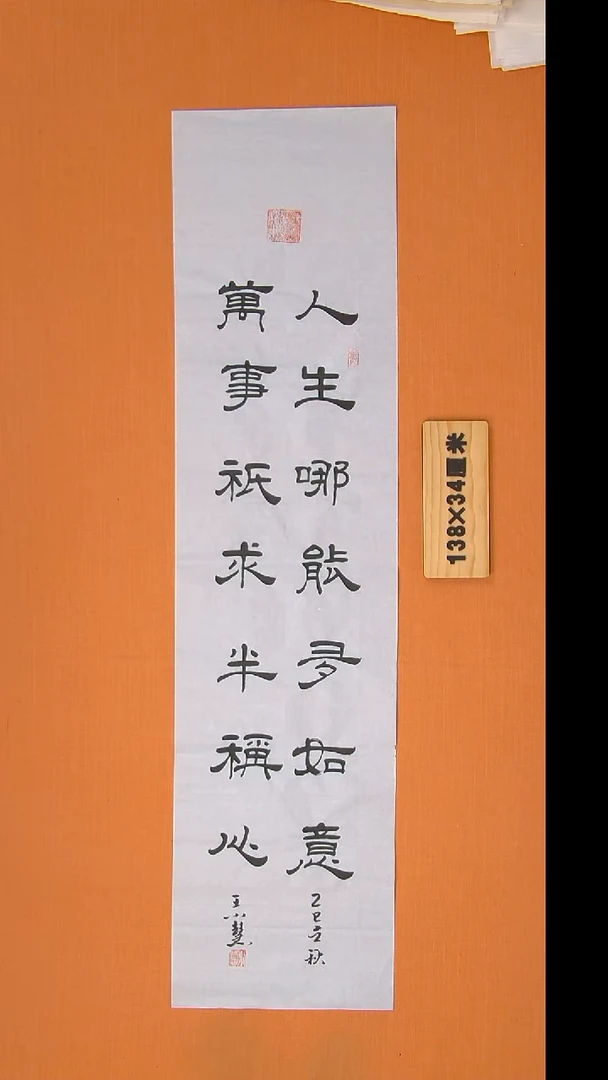 人生哪能多如意
乙巳立秋
萬事祇求半稱心
138×34厘米